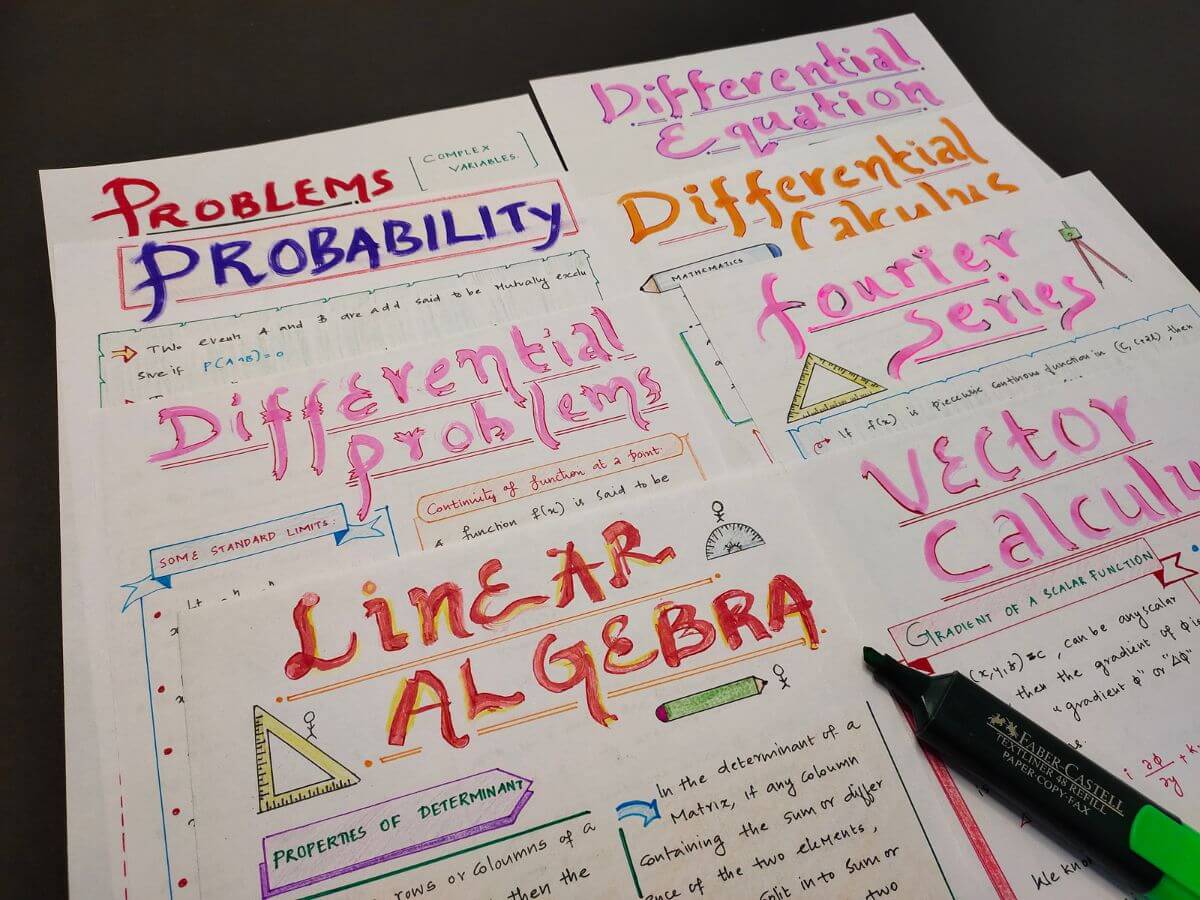 PROBLEMS
COMPLEX
VARIABLES.
PROBABILITY
TWO events A and B are add said to be Mutually exclu
sive if P(A∩B)=0
Differential
Equation
Differential
Calculus
MATHEMATICS
fourier
series
If f(x) is piecewise continous function in (C, C+2l), then
Differential
problems
Continuity of function at a point.
A function f(x) is said to be
SOME STANDARD LIMITS:
VECTOR
Calculu
GRADIENT OF A SCALAR FUNCTION
(x,y,z)=c, can be any scalar
then the gradient of ϕ is
"gradient ϕ" or "Δϕ"
i ∂ϕ/∂y + k
We kno
LINEAR
ALGEBRA
PROPERTIES OF DETERMINANT
rows or coloumns of a
then the
In the determinant of a
Matrix, if any coloumn
containing the sum or differ
ence of the two elements,
split in to sum or
two
FABER-CASTELL
TEXTLINER 48 REFILL
PAPER-COPY-FAX